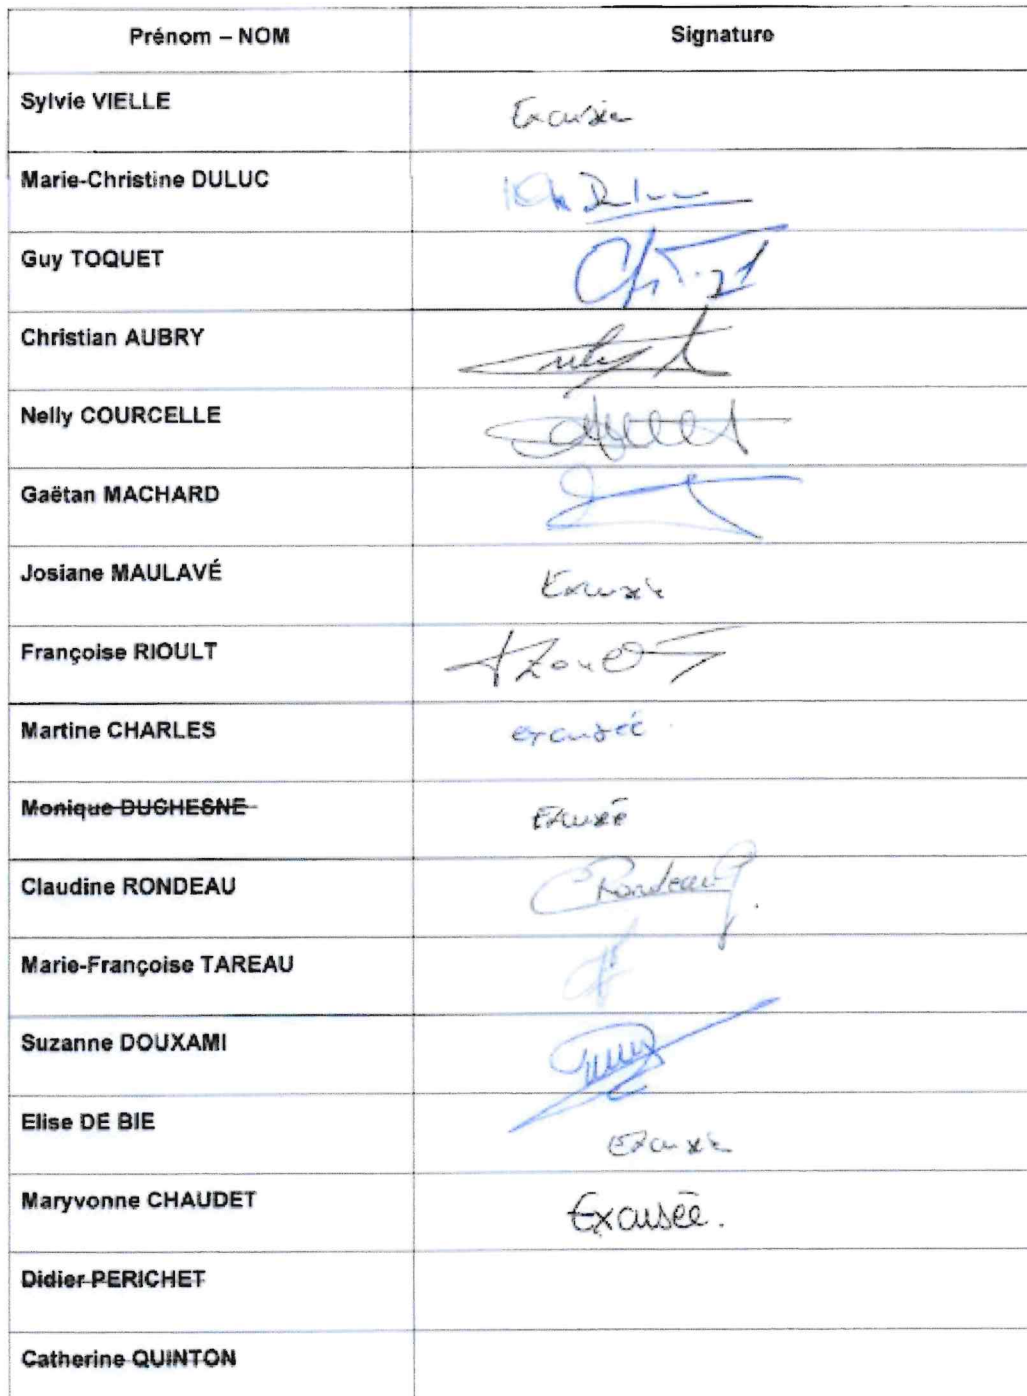 Prénom – NOM Signature
Sylvie VIELLE Excusée
Marie-Christine DULUC
Guy TOQUET
Christian AUBRY
Nelly COURCELLE
Gaëtan MACHARD
Josiane MAULAVÉ Excusée
Françoise RIOULT
Martine CHARLES excusée
Monique DUCHESNE Excusée
Claudine RONDEAU CRondeau
Marie-Françoise TAREAU
Suzanne DOUXAMI
Elise DE BIE Excusée
Maryvonne CHAUDET Excusée.
Didier PERICHET
Catherine QUINTON